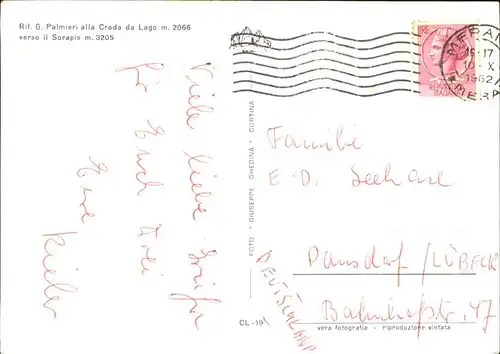 Rif. G. Palmieri alla Croda da Lago m. 2066
verso il Sorapis m. 3205
MERAN
19-17
10 - X
1962
MERA
REPVBBL
ITALIANA
Viele liebe Grüße
für Euch drei
Eure
Kieler
FOTO * GIUSEPPE GHEDINA * CORTINA
CL-19
Familie
E. D. Seekase
Pansdorf / LÜBECK
Bahnhofstr. 47
DEUTSCHLAND
vera fotografia - riproduzione vietata